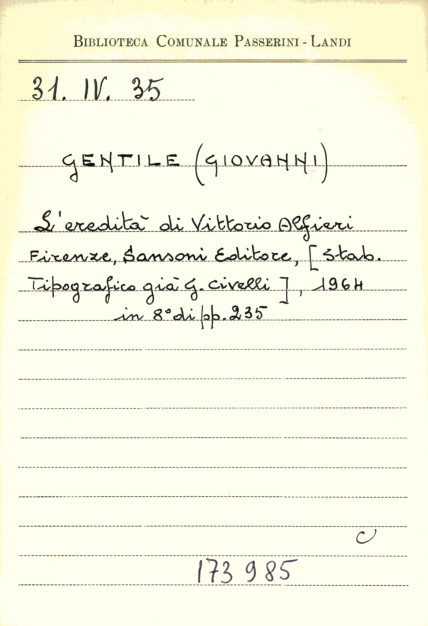 BIBLIOTECA COMUNALE PASSERINI-LANDI
31. IV. 35
GENTILE (GIOVANNI)
L'eredità di Vittorio Alfieri
Firenze, Sansoni Editore, [Stab.
Tipografico già G. Civelli], 1964
in 8° di pp. 235
C
173985